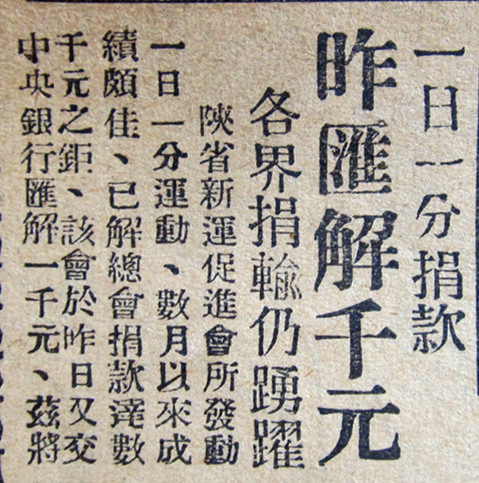 一日一分捐款
昨匯解千元
各界捐輸仍踴躍
陝省新運促進會所發動
一日一分運動、數月以來成
績頗佳、已解總會捐款達數
千元之鉅、該會於昨日又交
中央銀行匯解一千元、茲將